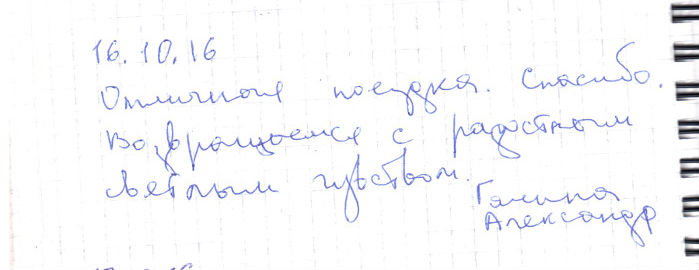 16.10.16
Отличная поездка. Спасибо.
Возвращаемся с радостным
светлым чувством.
Галина
Александр